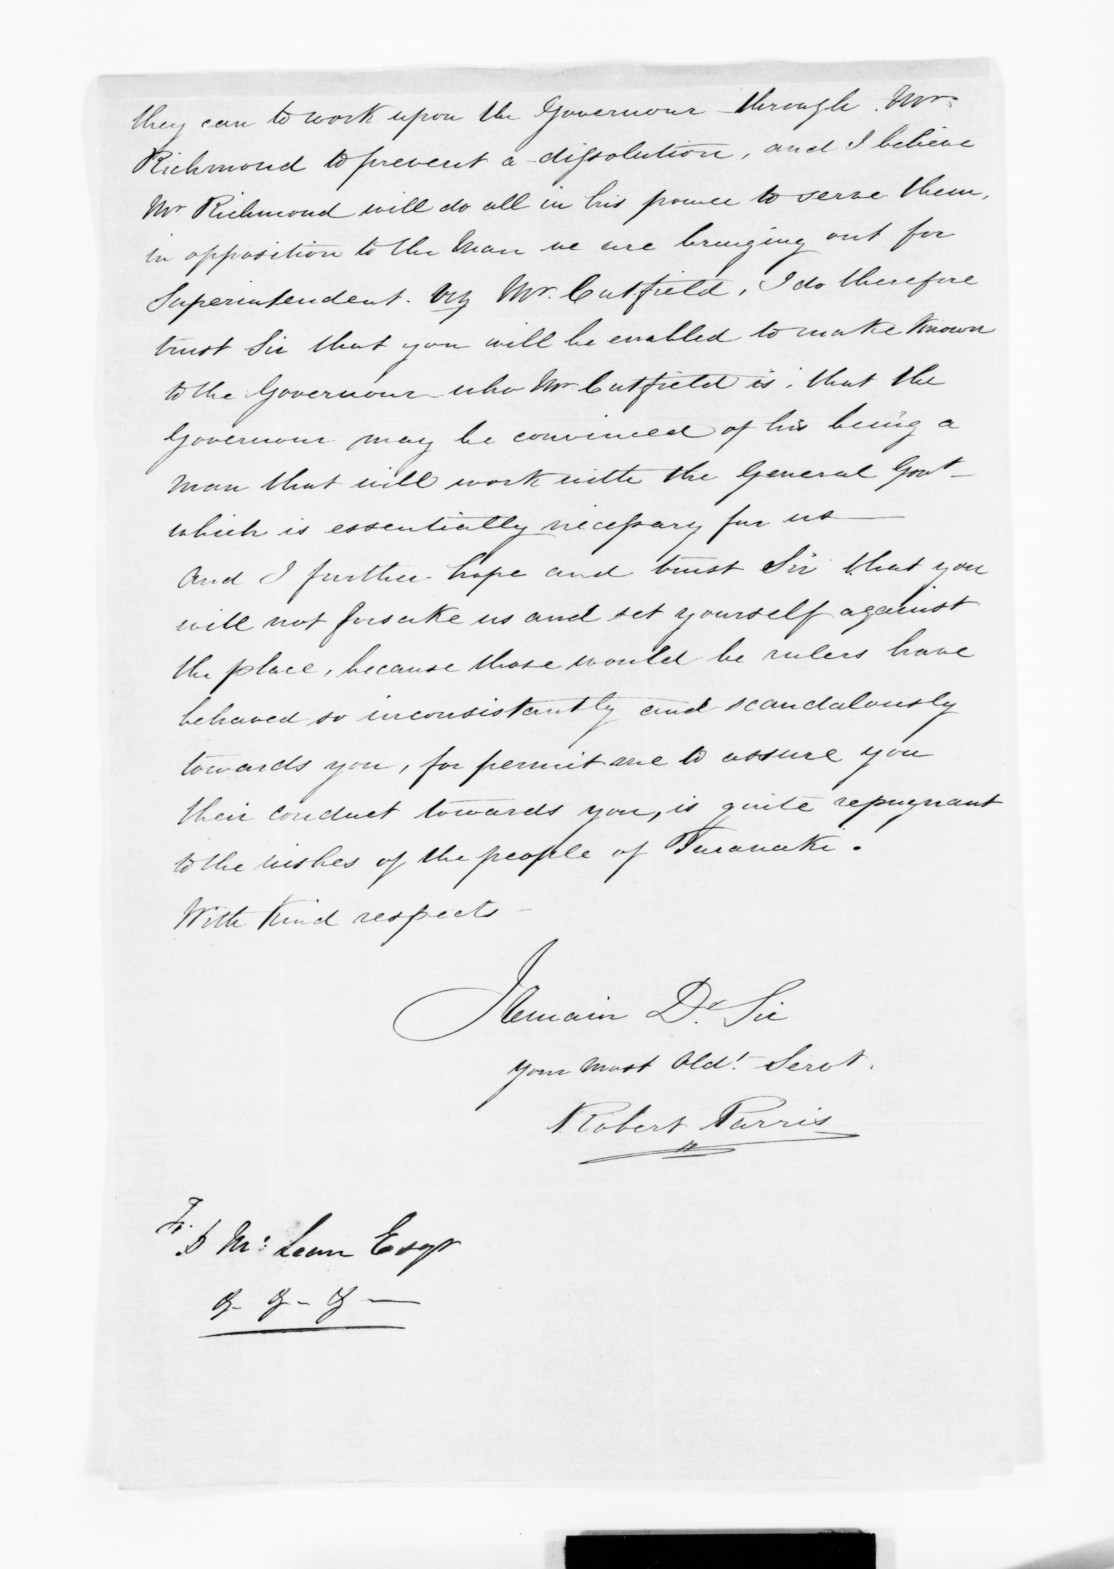 they can to work upon the Governour through Mr
Richmond to prevent a dissolution, and I believe
Mr Richmond will do all in his power to serve them,
in opposition to the Man we are bringing out for
Superintendent. viz Mr. Cutfield, I do therefore
trust Sir that you will be enabled to make known
to the Governour who Mr Cutfield is, that the
Governour may be convinced of his being a
man that will work with the General Govt
which is essentially nicessary for us —
And I further hope and trust Sir that you
will not forsake us and set yourself against
the place, because those would be rulers have
behaved so inconsistantly and scandalously
towards you, for permit me to assure you
their conduct towards you, is quite repugnant
to the wishes of the people of Taranaki.
With Kind respects —
I Remain Dr. Sir
your most Obdt. Servt.
Robert Parris
To.
D Mc: Lean Esqr
&- &- & —